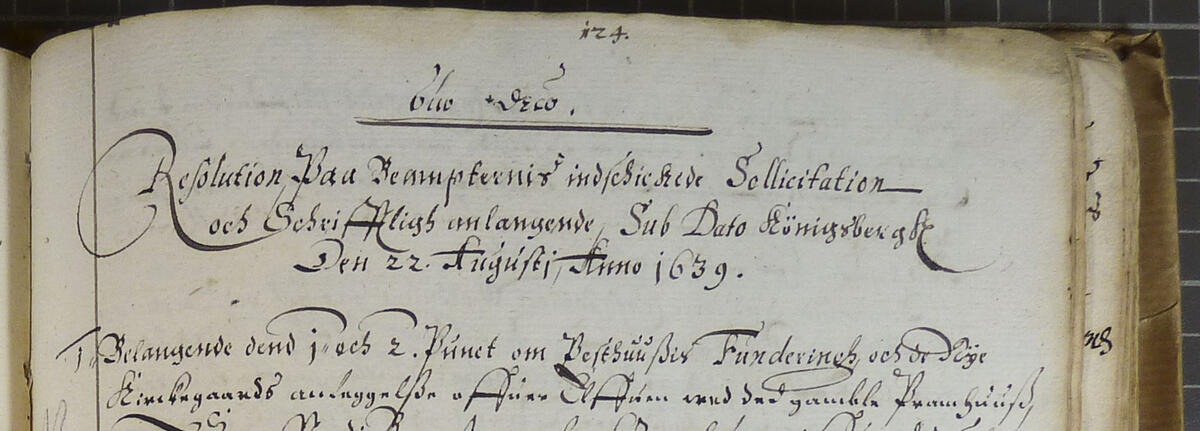 124.
Resolution Paa Bempternis indschickede Sollicitation
och Schriffligh anlangende, Sub Dato Königsbergk
Den 22. Augustj, Anno 1639.
1. Belangende dend 1. och 2. Punct om Pesthuußis Funderinch, och de Nye
Kirckegaards anleggelße offuer Elffuen wed ded gamble Pramhuuß,